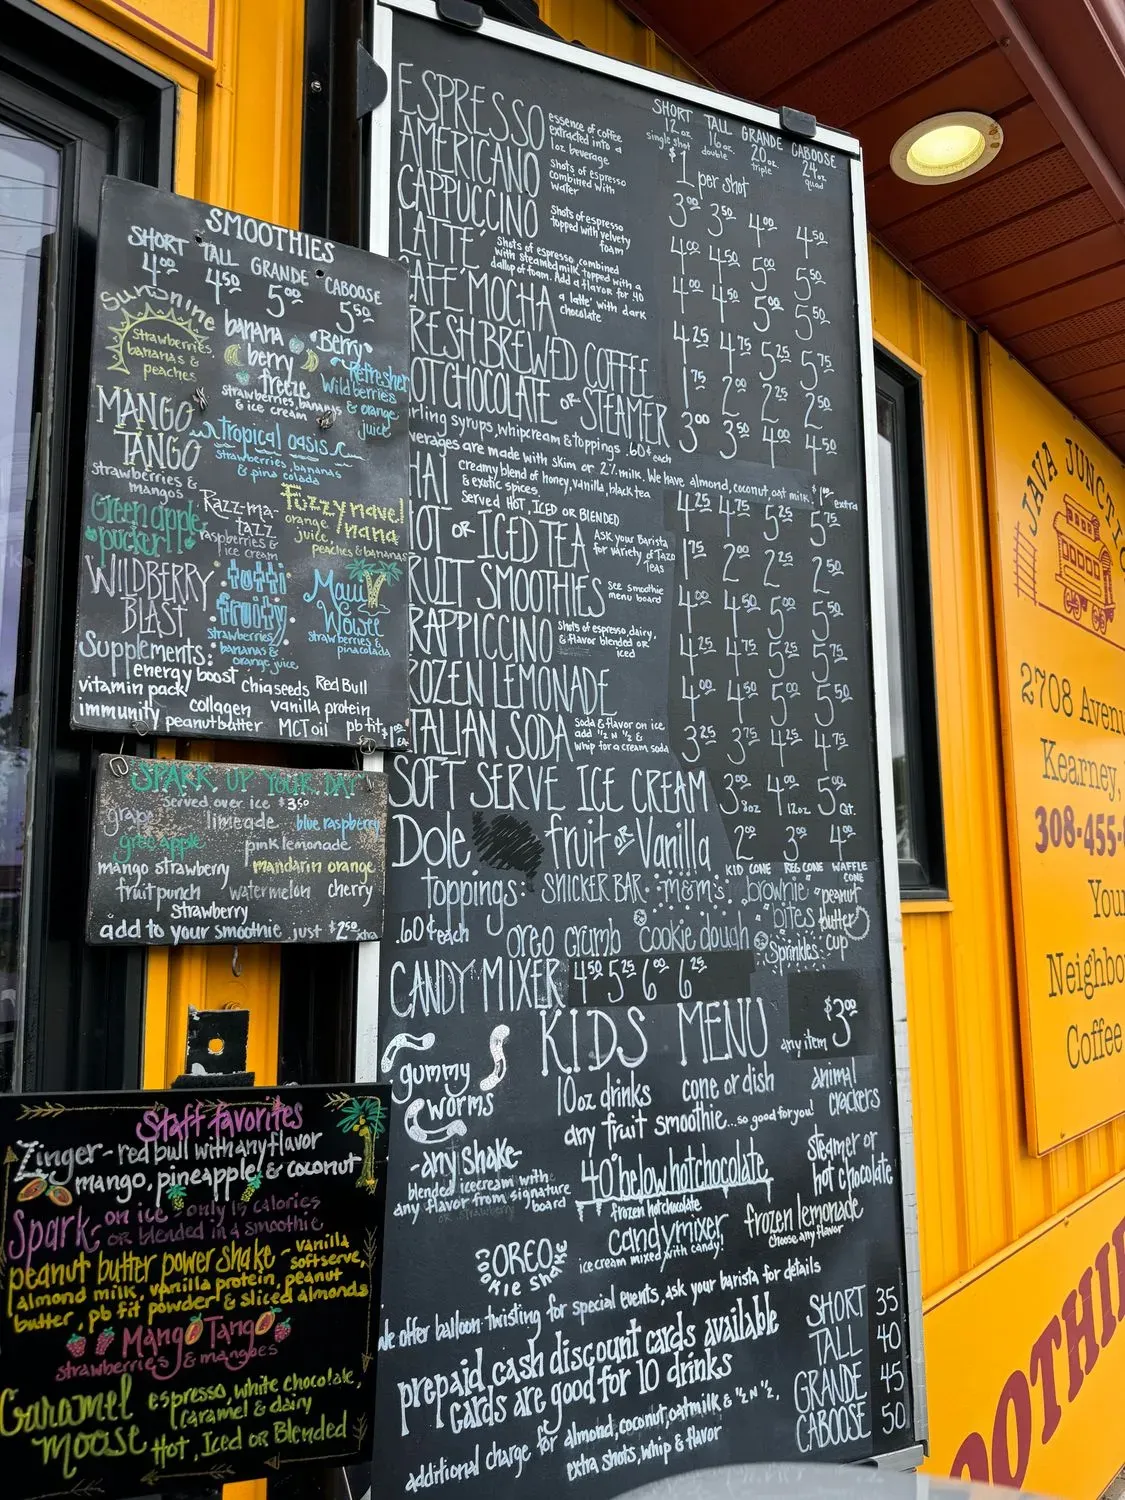 SMOOTHIES
SHORT TALL GRANDE CABOOSE
4.00 4.50 5.00 5.50
Sunshine
strawberries,
bananas &
peaches
banana
berry
freeze
strawberries, bananas
& ice cream
Berry
Refresher
Wildberries
& orange
juice
MANGO
TANGO
strawberries &
mangos
tropical oasis
strawberries, bananas
& pina colada
Green apple
pucker!!
Razz-ma-
tazz
raspberries &
ice cream
fuzzy navel
/nana
orange
juice,
peaches & bananas
WILDBERRY
BLAST
tutti
fruity
strawberries,
bananas &
orange juice
Maui
Wowee
strawberries &
pinacolada
Supplements:
energy boost chia seeds Red Bull
vitamin pack collagen vanilla protein
immunity peanut butter MCT oil pb fit $1.00 Ea
SPARK UP YOUR DAY
served over ice $3.50
grape limeade blue raspberry
green apple pink lemonade
mango strawberry mandarin orange
fruit punch watermelon cherry
strawberry
add to your smoothie just $2.50 xtra
Staff favorites
Zinger - red bull with any flavor
mango, pineapple & coconut
Spark - on ice - only 15 calories
or blended in a smoothie
peanut butter power shake - vanilla
softserve,
almond milk, vanilla protein, peanut
butter, pb fit powder & sliced almonds
Mango Tango
strawberries & mangoes
Caramel
moose
espresso, white chocolate,
caramel & dairy
Hot, Iced or Blended
SHORT TALL GRANDE CABOOSE
12oz 16oz 20oz 24oz
single shot double triple quad
ESPRESSO essence of coffee
extracted into a
1oz beverage
$1 per shot
AMERICANO shots of espresso
combined with
water
3.00 3.50 4.00 4.50
CAPPUCCINO Shots of espresso
topped with velvety
foam
4.00 4.50 5.00 5.50
LATTE Shots of espresso, combined
with steamed milk, topped with a
dallop of foam. Add a flavor for 40
4.00 4.50 5.00 5.50
CAFE MOCHA a latte' with dark
chocolate
4.25 4.75 5.25 5.75
RESH BREWED COFFEE
1.75 2.00 2.25 2.50
OT CHOCOLATE or STEAMER
3.00 3.50 4.00 4.50
rling syrups, whipcream & toppings .60¢ each
verages are made with skim or 2% milk. We have almond, coconut, oat milk $1.00 extra
HAI creamy blend of honey, vanilla, black tea
& exotic spices
Served HOT, ICED OR BLENDED
4.25 4.75 5.25 5.75
OT or ICED TEA Ask your Barista
for variety of Tazo
Teas
1.75 2.00 2.25 2.50
RUIT SMOOTHIES see smoothie
menu board
4.00 4.50 5.00 5.50
RAPPICCINO Shots of espresso, dairy,
& flavor blended or
iced
4.25 4.75 5.25 5.75
ROZEN LEMONADE
4.00 4.50 5.00 5.50
TALIAN SODA Soda & flavor on ice
add ½ n ½ &
whip for a cream soda
3.25 3.75 4.25 4.75
SOFT SERVE ICE CREAM 3.00 8oz 4.00 12oz 5.00 Qt.
Dole fruit or Vanilla 2.00 3.00 4.00
KID CONE REG CONE WAFFLE
CONE
toppings: SNICKER BAR m&m's brownie
bites
peanut
butter
cup
.60¢ each oreo crumb cookie dough sprinkles
CANDY MIXER 4.50 5.25 6.00 6.25
KIDS MENU any item $3.00
gummy
worms
10oz drinks cone or dish animal
crackers
any fruit smoothie...so good for you!
-any shake-
blended icecream with
any flavor from signature
board
40° below hot chocolate
frozen hot chocolate
steamer or
hot chocolate
candymixer
icecream mixed with candy!
frozen lemonade
choose any flavor
OREO
cookie shake
We offer balloon twisting for special events, ask your barista for details
prepaid cash discount cards available
cards are good for 10 drinks
SHORT 35
TALL 40
GRANDE 45
CABOOSE 50
additional charge for almond, coconut, oatmilk & ½ n ½,
extra shots, whip & flavor
JAVA JUNCTIO
2708 Avenu
Kearney,
308-455-
Your
Neighbo
Coffee
OOTHI